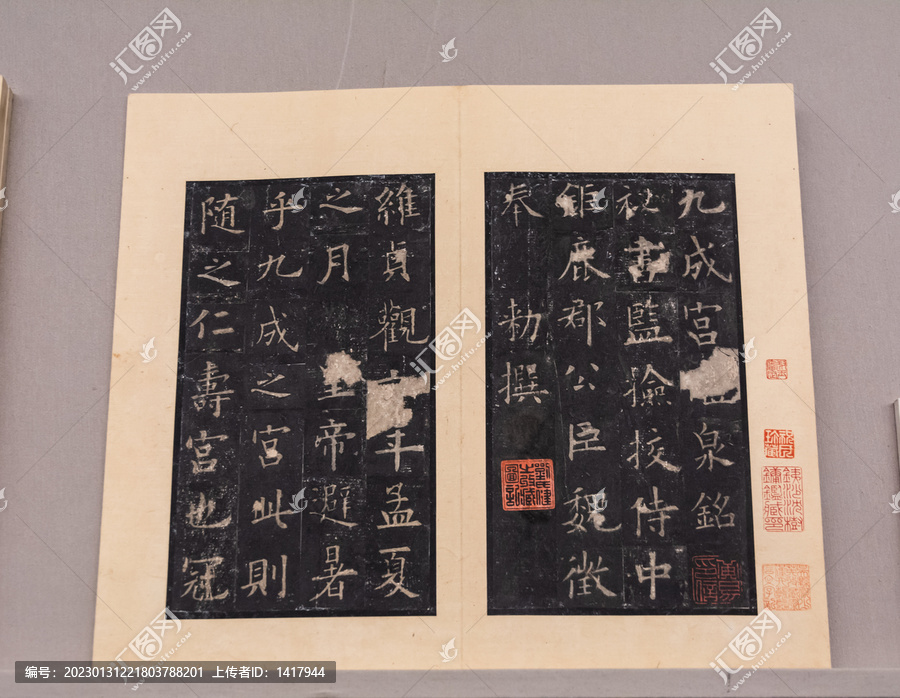 九成宮 泉銘
秘書監撿挍侍中
鉅鹿郡公臣魏徵
奉 勑撰
維貞觀 年孟夏
之月 皇帝避暑
乎九成之宮此則
随之仁壽宮也冠
汇图网
www.huitu.com
编号：20230131221803788201 上传者ID：1417944